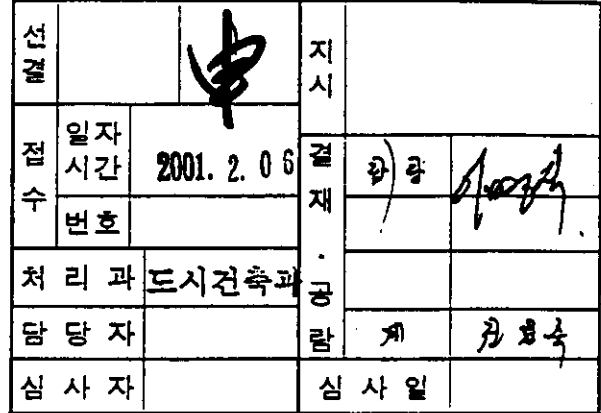 선결
지시
접수
일자
시간
2001. 2. 06
결재·공람
번호
처리과
도시건축과
담당자
계
심사자
심사일